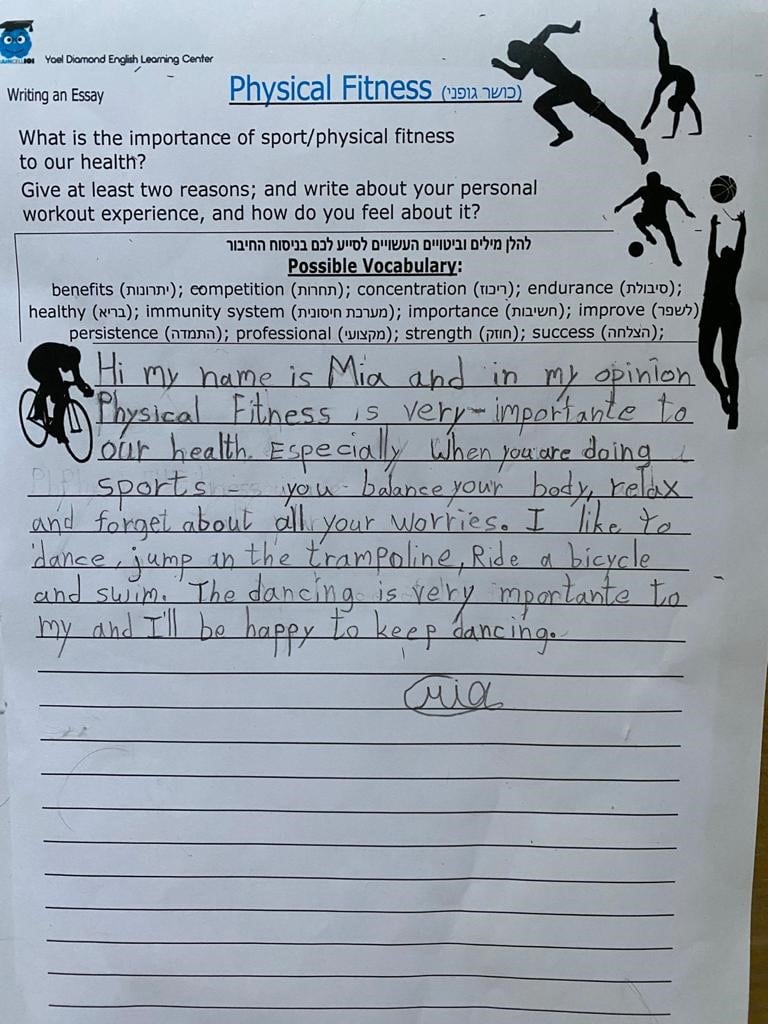 Yoel Diamond English Learning Center
Writing an Essay
Physical Fitness (כושר גופני)
What is the importance of sport/physical fitness
to our health?
Give at least two reasons; and write about your personal
workout experience, and how do you feel about it?
להלן מילים וביטויים העשויים לסייע לכם בניסוח החיבור
Possible Vocabulary:
benefits (יתרונות); competition (תחרות); concentration (ריכוז); endurance (סיבולת);
healthy (בריא); immunity system (מערכת חיסונית); importance (חשיבות); improve (לשפר)
persistence (התמדה); professional (מקצועי); strength (חוזק); success (הצלחה);
Hi my name is Mia and in my opinion
Physical Fitness is very importante to
our health. Especially When you are doing
sports - you balance your body, relax
and forget about all your worries. I like to
dance, jump an the trampoline, Ride a bicycle
and swim. The dancing is very mportante to
my and I'll be happy to keep dancing.
Mia